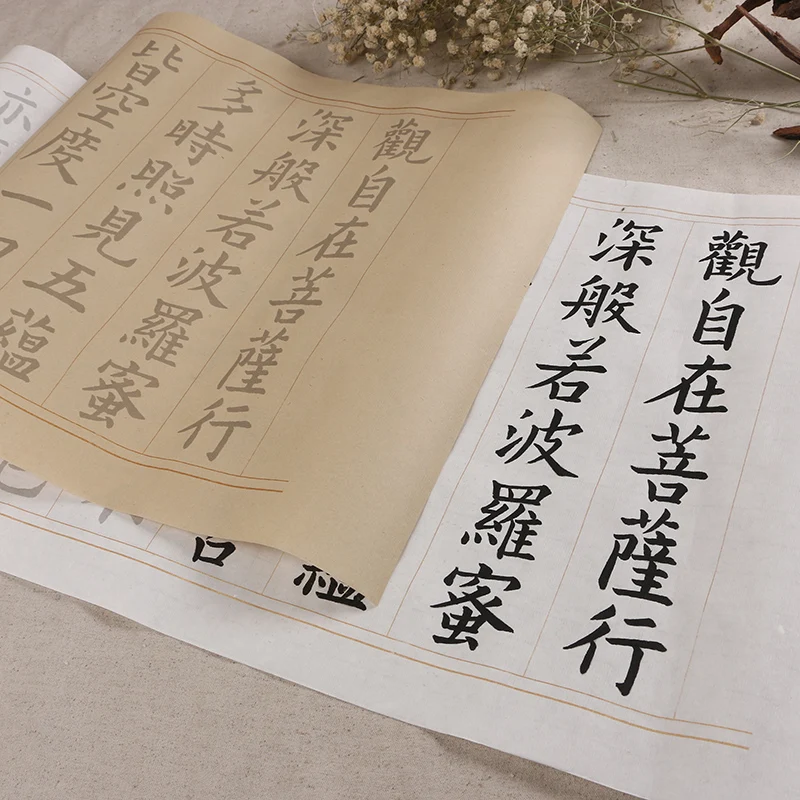 觀自在菩薩行
深般若波羅蜜
蘊
觀自在菩薩行
深般若波羅蜜
多時照見五蘊
皆空度一
亦